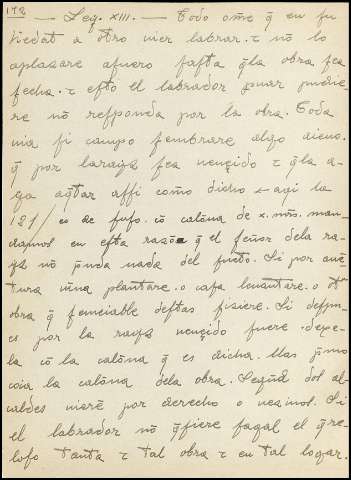 172
— Ley. XIII. — Todo ome q̃ en su
hiedat a otro vier labrar. τ no lo
aplazare afuero fasta q̃la obra sea
fecha. τ esto el labrador puar pudie-
re nõ respponda por la obra. Toda
via si campo sembrare algo aieno.
q̃ por larayz sea uençido τ q̃la a-
ya aq̃tar assi como dicho es aqi la
121/ es de suso. cõ calõna de x. mr̃s. man-
damos en esta razon q̃ el señor dela ra-
yz nõ pᵉnda nada del fruto. Si por auẽ-
tura uĩna plantare. o casa leuantare. o ot
obra q̃ semeiable destas fisiere. Si despu-
es por la rayz uençido fuere. dexe-
la cõ la calõna q̃ es dicha. Mas pᵒmo
coia la calõna dela obra. Segũd dos al-
caldes uierẽ por derecho o ueainos. Si
el labrador nõ q̃siere fagal el q̃re-
loso tanta τ tal obra τ en tal logar.